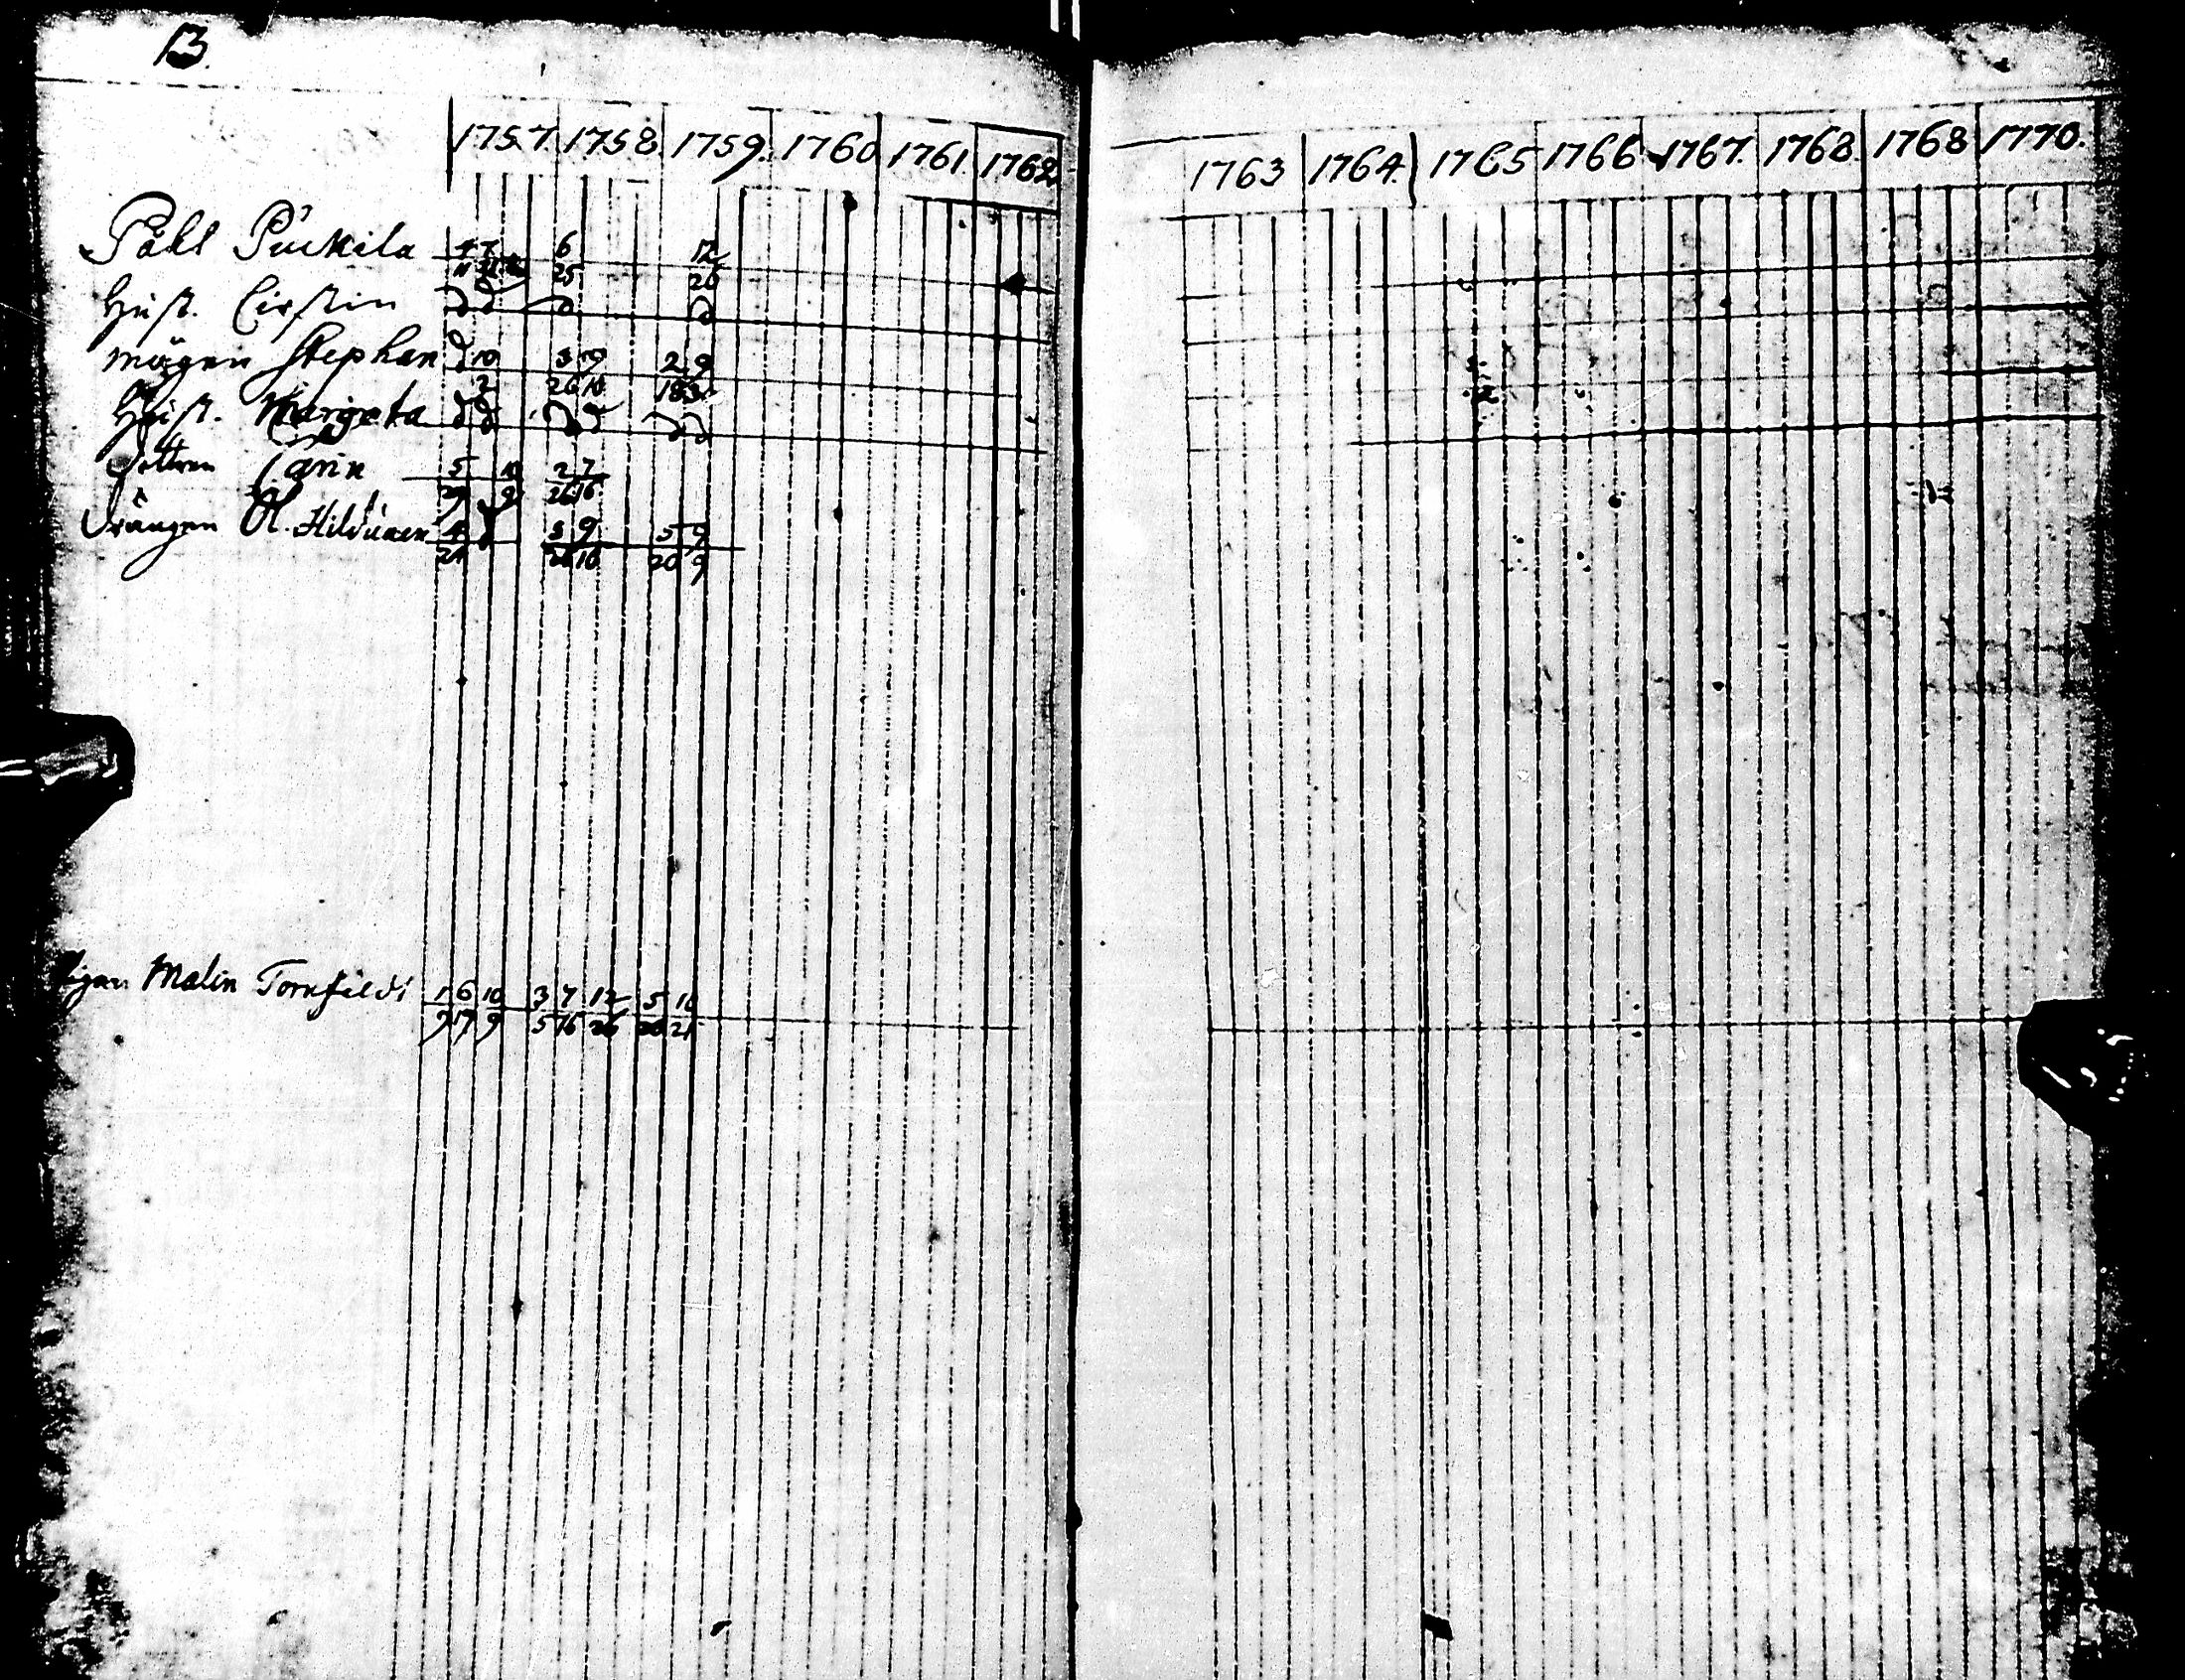 13.
1757. 1758. 1759. 1760 1761. 1762 1763 1764. 1765 1766 1767. 1768. 1768 1770.
Påhl Puckila 4 7 6 12
11 25 26
Hust. Cirstin d d d d
mågen Stephan d 10 3 10 2 9
2 26 18
Hust. Margeta d d d d d d
Carin 5 10 2 7
29 9 26 16
Drängen Ol. Hildunen 4 d 3 9 5 9
24 26 10 20 9
Malin Tornfeldt 1 6 10 3 7 12 5 10
9 17 9 5 16 26 20 21